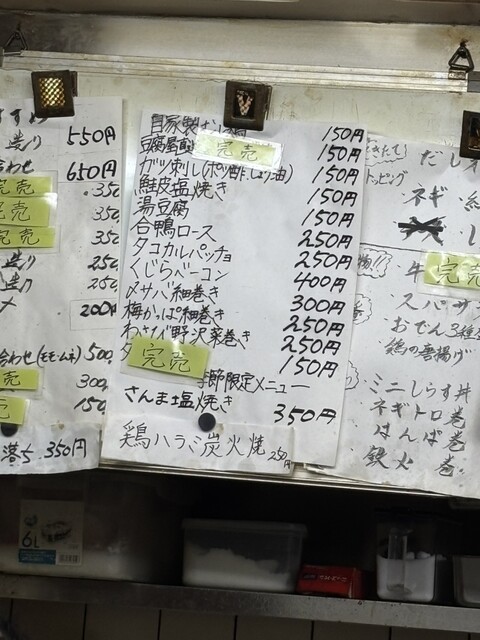 造り 550円
合わせ 650円
完売 350
完売 350
完売 350
造り 250
造り 250
200円
合わせ(モモ・ムネ) 500
売 300
150
落ち 350円
自家製 150円
豆腐 完売 150円
ガツ刺し(ポン酢、しょう油) 150円
鮭皮塩焼き 150円
湯豆腐 150円
合鴨ロース 250円
タコカルパッチョ 250円
くじらベーコン 400円
〆サバ細巻き 300円
梅かっぱ細巻き 250円
わさび野沢菜巻き 250円
完売 150円
季節限定メニュー
さんま塩焼き 350円
鶏ハラミ炭火焼 250円
だし
トッピング
・ネギ
・牛 完売
・スパ
・おでん3種
・鶏の唐揚げ
・ミニしらす丼
・ネギトロ巻
・鉄火巻
6L